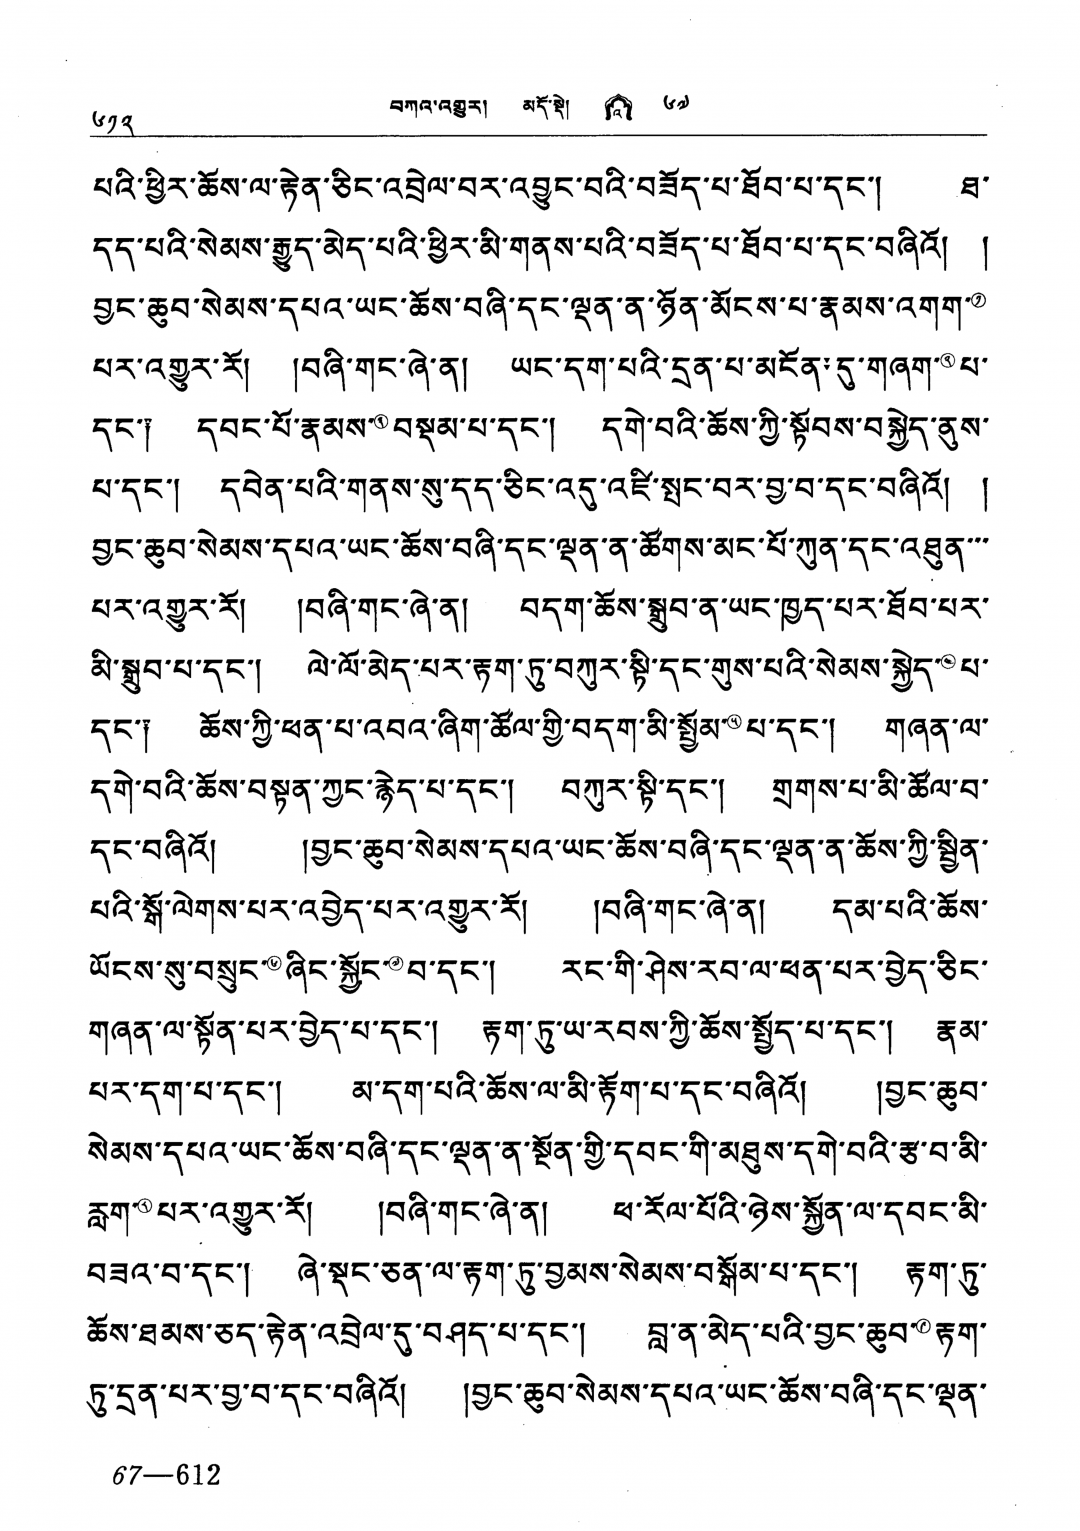 ༦༡༢ བཀའ་འགྱུར། མདོ་སྡེ། ༦༧
པའི་ཕྱིར་ཆོས་ལ་རྟེན་ཅིང་འབྲེལ་བར་འབྱུང་བའི་བཟོད་པ་ཐོབ་པ་དང་། ཐ་
དད་པའི་སེམས་རྒྱུད་མེད་པའི་ཕྱིར་མི་གནས་པའི་བཟོད་པ་ཐོབ་པ་དང་བཞིའོ། །
བྱང་ཆུབ་སེམས་དཔའ་ཡང་ཆོས་བཞི་དང་ལྡན་ན་ཉོན་མོངས་པ་རྣམས་འགག་①
པར་འགྱུར་རོ། །བཞི་གང་ཞེ་ན། ཡང་དག་པའི་དྲན་པ་མངོན་དུ་གཞག་②པ་
དང་། དབང་པོ་རྣམས་③བསྡམ་པ་དང་། དགེ་བའི་ཆོས་ཀྱི་སྟོབས་བསྐྱེད་ནུས་
པ་དང་། དབེན་པའི་གནས་སུ་དད་ཅིང་འདུ་འཛི་སྤང་བར་བྱ་བ་དང་བཞིའོ། །
བྱང་ཆུབ་སེམས་དཔའ་ཡང་ཆོས་བཞི་དང་ལྡན་ན་ཚོགས་མང་པོ་ཀུན་དང་འཐུན་
པར་འགྱུར་རོ། །བཞི་གང་ཞེ་ན། བདག་ཆོས་སྒྲུབ་ན་ཡང་ཁྱད་པར་ཐོབ་པར་
མི་སྒྲུབ་པ་དང་། ལེ་ལོ་མེད་པར་རྟག་ཏུ་བཀུར་སྟི་དང་གུས་པའི་སེམས་སྐྱེད་④པ་
དང་། ཆོས་ཀྱི་ཕན་པ་འབའ་ཞིག་ཚོལ་གྱི་བདག་མི་སྤྱོམ་⑤པ་དང་། གཞན་ལ་
དགེ་བའི་ཆོས་བསྟན་ཀྱང་རྙེད་པ་དང་། བཀུར་སྟི་དང་། གྲགས་པ་མི་ཚོལ་བ་
དང་བཞིའོ། །བྱང་ཆུབ་སེམས་དཔའ་ཡང་ཆོས་བཞི་དང་ལྡན་ན་ཆོས་ཀྱི་སྦྱིན་
པའི་སྒོ་ལེགས་པར་འབྱེད་པར་འགྱུར་རོ། །བཞི་གང་ཞེ་ན། དམ་པའི་ཆོས་
ཡོངས་སུ་བསྲུང་⑥ཞིང་སྐྱོང་⑦བ་དང་། རང་གི་ཤེས་རབ་ལ་ཕན་པར་བྱེད་ཅིང་
གཞན་ལ་སྟོན་པར་བྱེད་པ་དང་། རྟག་ཏུ་ཡ་རབས་ཀྱི་ཆོས་སྤྱོད་པ་དང་། རྣམ་
པར་དག་པ་དང་། མ་དག་པའི་ཆོས་ལ་མི་རྟོག་པ་དང་བཞིའོ། །བྱང་ཆུབ་
སེམས་དཔའ་ཡང་ཆོས་བཞི་དང་ལྡན་ན་སྔོན་གྱི་དབང་གི་མཐུས་དགེ་བའི་རྩ་བ་མི་
རླག་⑧པར་འགྱུར་རོ། །བཞི་གང་ཞེ་ན། ཕ་རོལ་པོའི་ཉེས་སྐྱོན་ལ་དབང་མི་
བཟའ་བ་དང་། ཞེ་སྡང་ཅན་ལ་རྟག་ཏུ་བྱམས་སེམས་བསྒོམ་པ་དང་། རྟག་ཏུ་
ཆོས་ཐམས་ཅད་རྟེན་འབྲེལ་དུ་བཤད་པ་དང་། བླ་ན་མེད་པའི་བྱང་ཆུབ་⑨རྟག་
ཏུ་དྲན་པར་བྱ་བ་དང་བཞིའོ། །བྱང་ཆུབ་སེམས་དཔའ་ཡང་ཆོས་བཞི་དང་ལྡན་
67—612